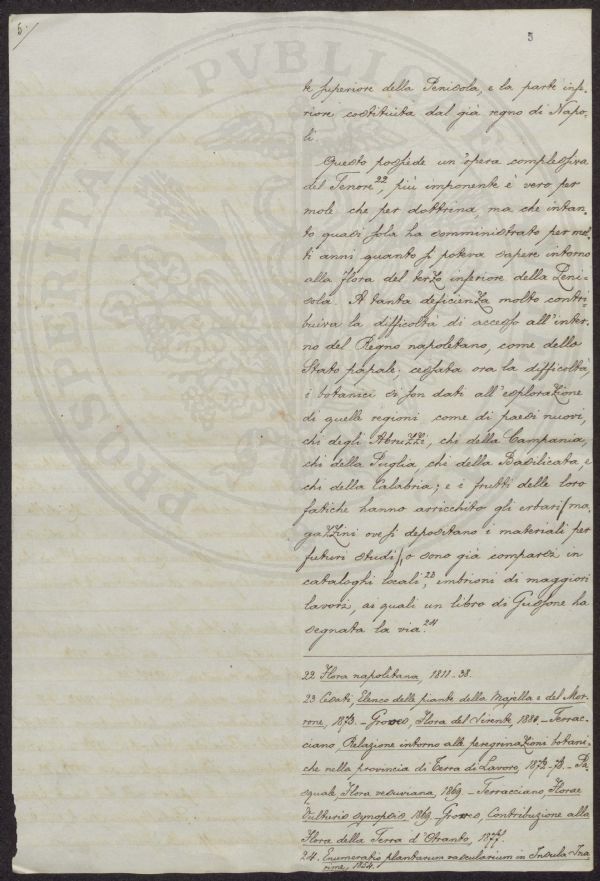 5.
5
te superiore della Penisola, e la parte infe-
riore costituita dal già regno di Napo-
li.
Questo possiede un'opera complessiva
del Tenore,22 più imponente è vero per
mole che per dottrina, ma che intan-
to quasi sola ha somministrato per mol-
ti anni quanto si poteva sapere intorno
alla Flora del terzo inferiore della Peni-
sola. A tanta deficienza molto contri-
buiva la difficoltà di accesso all'inter-
no del Regno napoletano, come dello
Stato papale; cessata ora la difficoltà,
i botanici si son dati all'esplorazione
di quelle regioni come di paesi nuovi,
chi degli Abruzzi, chi della Campania,
chi della Puglia, chi della Basilicata, e
chi della Calabria; e i frutti delle loro
fatiche hanno arricchito gli erbari (ma-
gazzini ove si depositano i materiali per
futuri studi), o sono già comparsi in
cataloghi locali,23 embrioni di maggiori
lavori, ai quali un libro di Gussone ha
segnata la via.24
22 Flora napolitana, 1811-38.
23 Cesati, Elenco delle piante della Majella e del Mor-
rone, 1873. - Groves, Flora del Sirente, 1880. - Terrac-
ciano, Relazione intorno alle peregrinazioni botani-
che nella provincia di Terra di Lavoro, 1872-78. - Pa-
squale, Flora vesuviana, 1869. - Terracciano, Florae
Vulturis synopsis, 1869. - Groves, Contribuzione alla
Flora della Terra d'Otranto, 1877.
24. Enumeratio plantarum vascularium in Insula Ina-
rime, 1854.
PROSPERITATI PVBLICAE